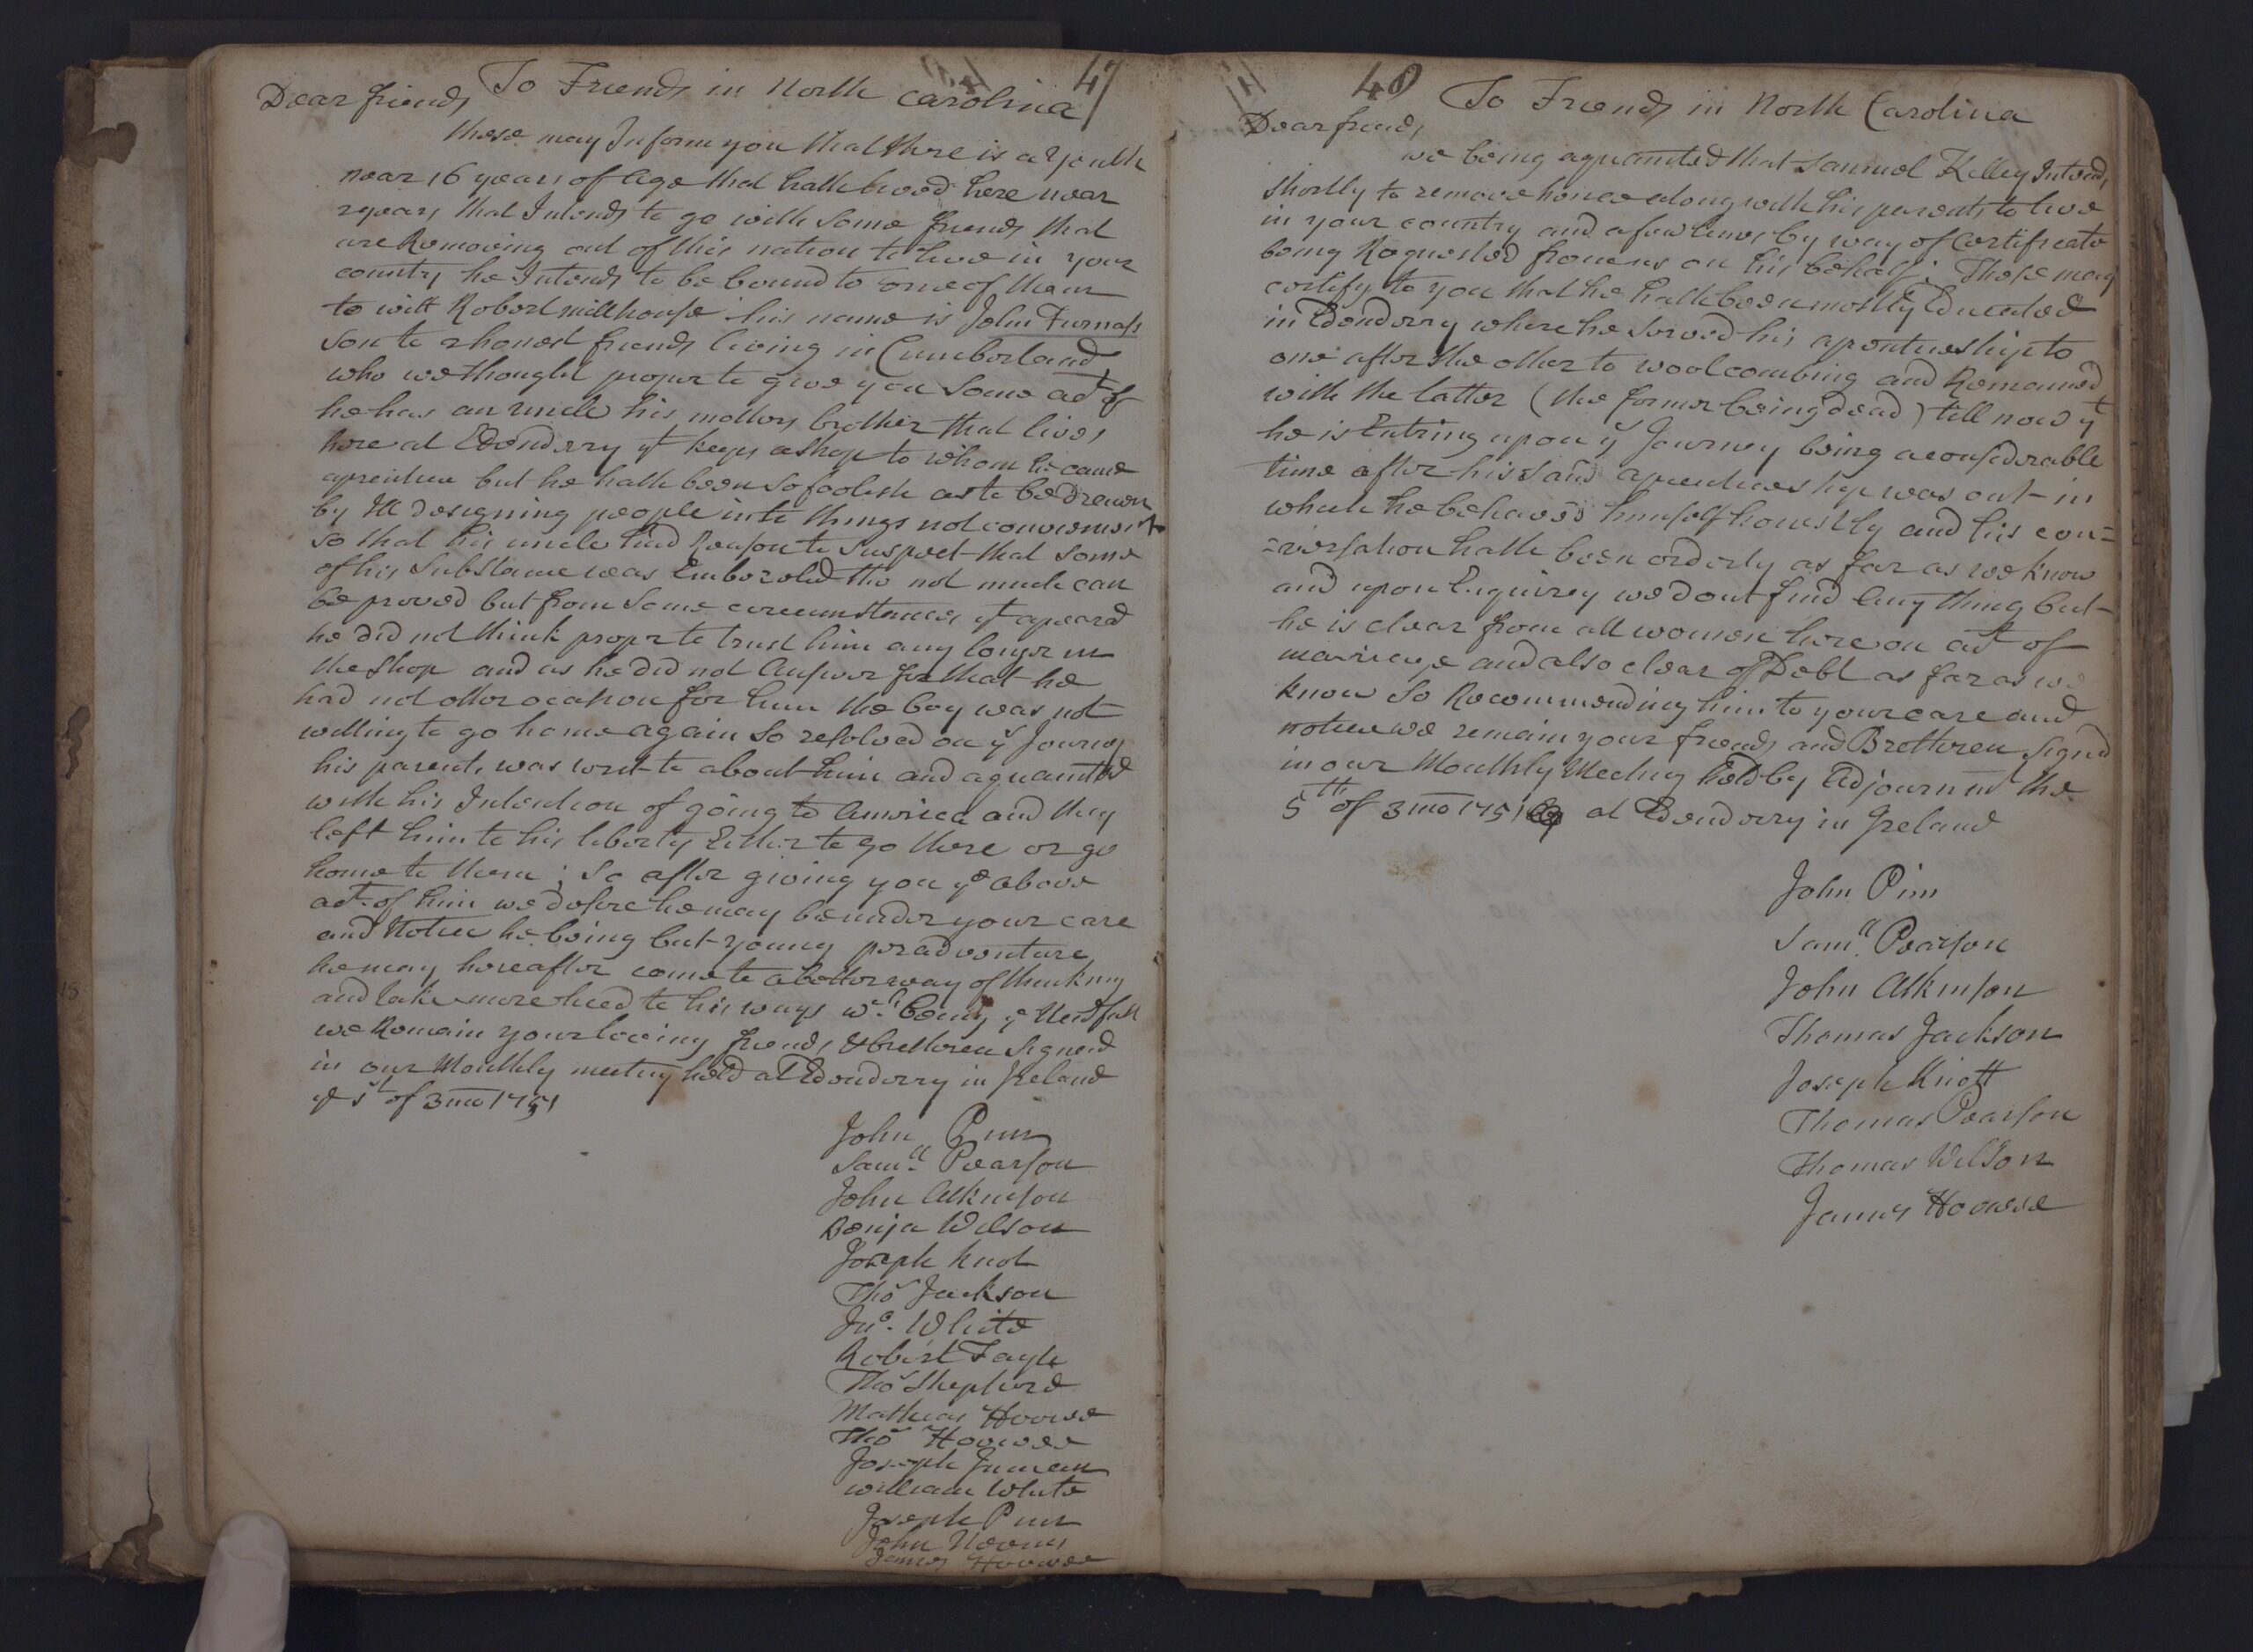 47
To Friends in North Carolina
Dear friends
these may Inform you that thre is a Youth
near 16 years of Age that hath lived here near
2 years that Intends to go with some friends that
are Removing out of this nation to live in your
country he Intends to be bound to one of them
to witt Robert millhouse his name is John Furnass
son to 2 honest friends living in Cumberland
who we thought proper to give you some act of
he has an uncle his mothers brother that lives
here at Edenderry yt keeps a shop to whom he came
aprentice but he hath been so foolish as to be drawn
by Ill designing people into things not convenient
so that his uncle had Reason to suspect that some
of his substance was Embezoled tho not much can
be proved but from some circumstances yt apeared
he did not think propr to trust him any longer in
the shop and as he did not Answer for that he
had not other ocation for him the boy was not
willing to go home again so resolved on ye Journey
his parents was writ to about him and aquainted
with his Intention of going to America and they
left him to his liberty Either to go there or go
home to them; So after giving you ye above
act of him we desire he may be under your care
and Notice he being but young peradventure
he may hereafter come to a better way of thinking
and take more heed to his ways wch being ye needfull
we Remain your loving friends & brethren Signed
in our Monthly meeting held at Edenderry in Ireland
ye 5t of 3mo 1751
John Pim
Samll Pearson
John Atkinson
Benja Wilson
Joseph Knot
Tho Jackson
Jno. White
Robert Fayle
Tho Shepherd
Mathias Hoowe
Tho Hoowee
Joseph Inman
william White
Joseph Pim
John
James Hoowee
48
To Friends in North Carolina
Dear friends
we being aquainted that Samuel Kelley Intends
shortly to remove hence along with his parents to live
in your country and a few lines by way of Certificate
being Requested from us on his behalf: These may
certify to you that he hath been mostly Educated
in Edenderry where he served his aprentieship to
one after the other to woolcombing and Remained
with the latter (the former being dead) till now yt
he is Entring upon ye Journey being a considerable
time after his said aprenticeship was out in
which he behaved himself honestly and his con=
=versation hath been orderly as far as we know
and upon Enquirey we dont find any thing but
he is clear from all women here on act of
marriage and also clear of Debt as far as we
know So Recommending him to your care and
notice we remain your friends and Brethren Signd
in our Monthly Meeting held by Adjournmt the
5th of 3mo 1751 at Edenderry in Ireland
John Pim
Samll Pearson
John Atkinson
Thomas Jackson
Joseph Knott
Thomas Pearson
Thomas Wilson
James Hoowee